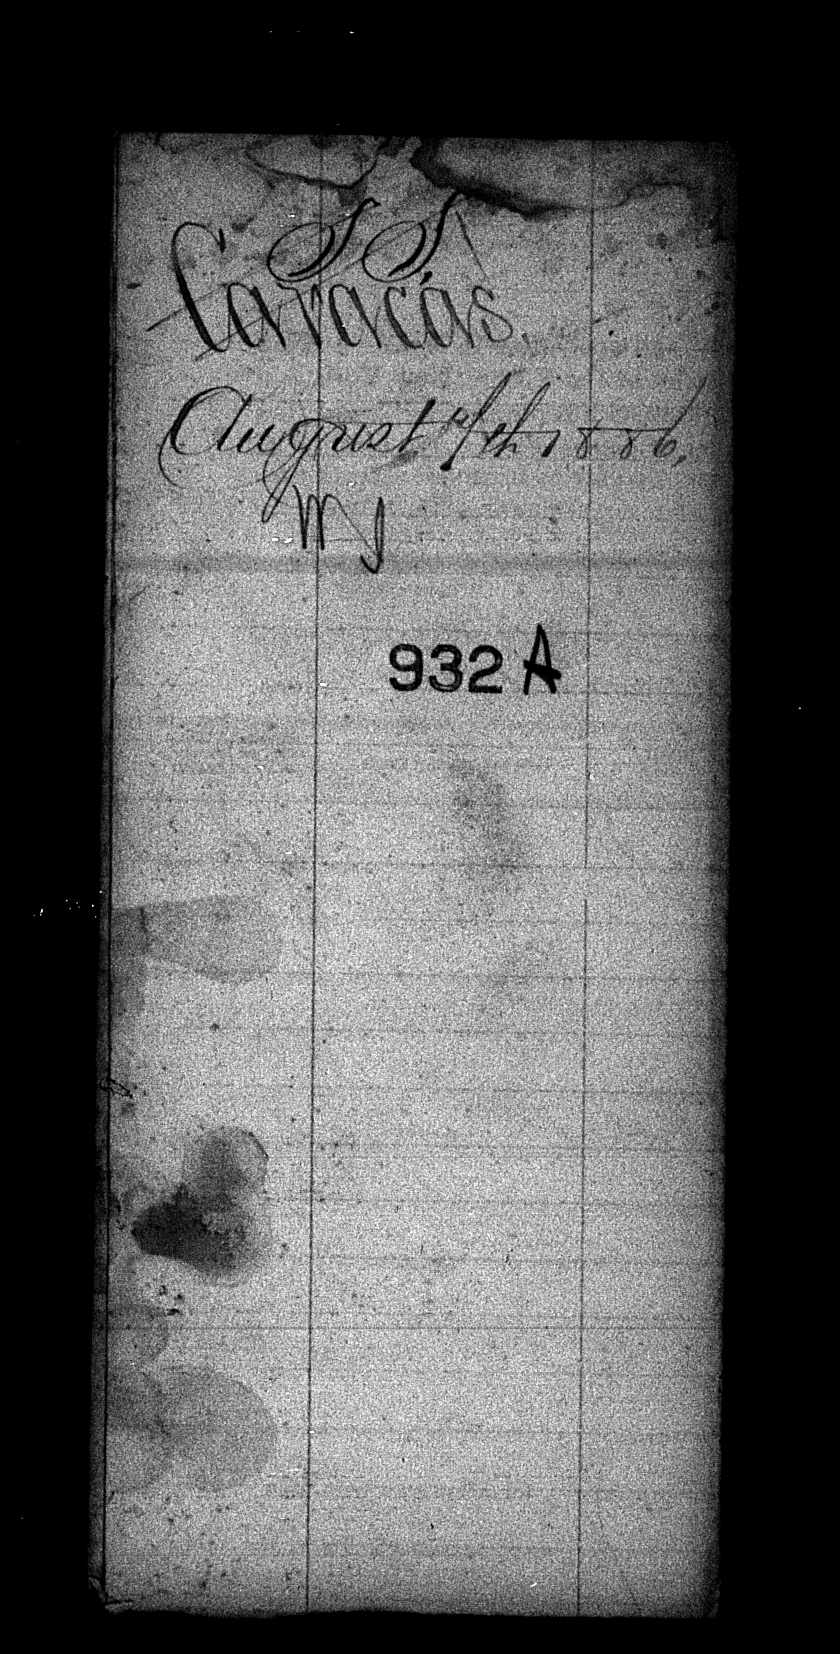 S S
Caracas.
August 4th 1886.
932 A